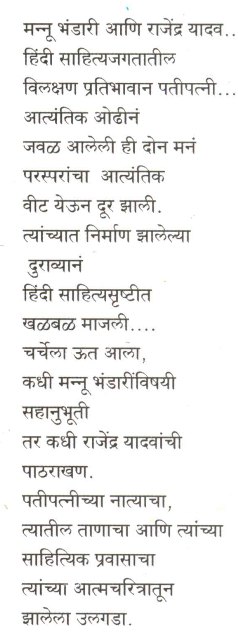 मन्नू भंडारी आणि राजेंद्र यादव..
हिंदी साहित्यजगतातील
विलक्षण प्रतिभावान पतीपत्नी...
आत्यंतिक ओढीनं
जवळ आलेली ही दोन मनं
परस्परांचा आत्यंतिक
वीट येऊन दूर झाली.
त्यांच्यात निर्माण झालेल्या
दुराव्यानं
हिंदी साहित्यसृष्टीत
खळबळ माजली....
चर्चेला ऊत आला,
कधी मन्नू भंडारींविषयी
सहानुभूती
तर कधी राजेंद्र यादवांची
पाठराखण.
पतीपत्नीच्या नात्याचा,
त्यातील ताणाचा आणि त्यांच्या
साहित्यिक प्रवासाचा
त्यांच्या आत्मचरित्रातून
झालेला उलगडा.